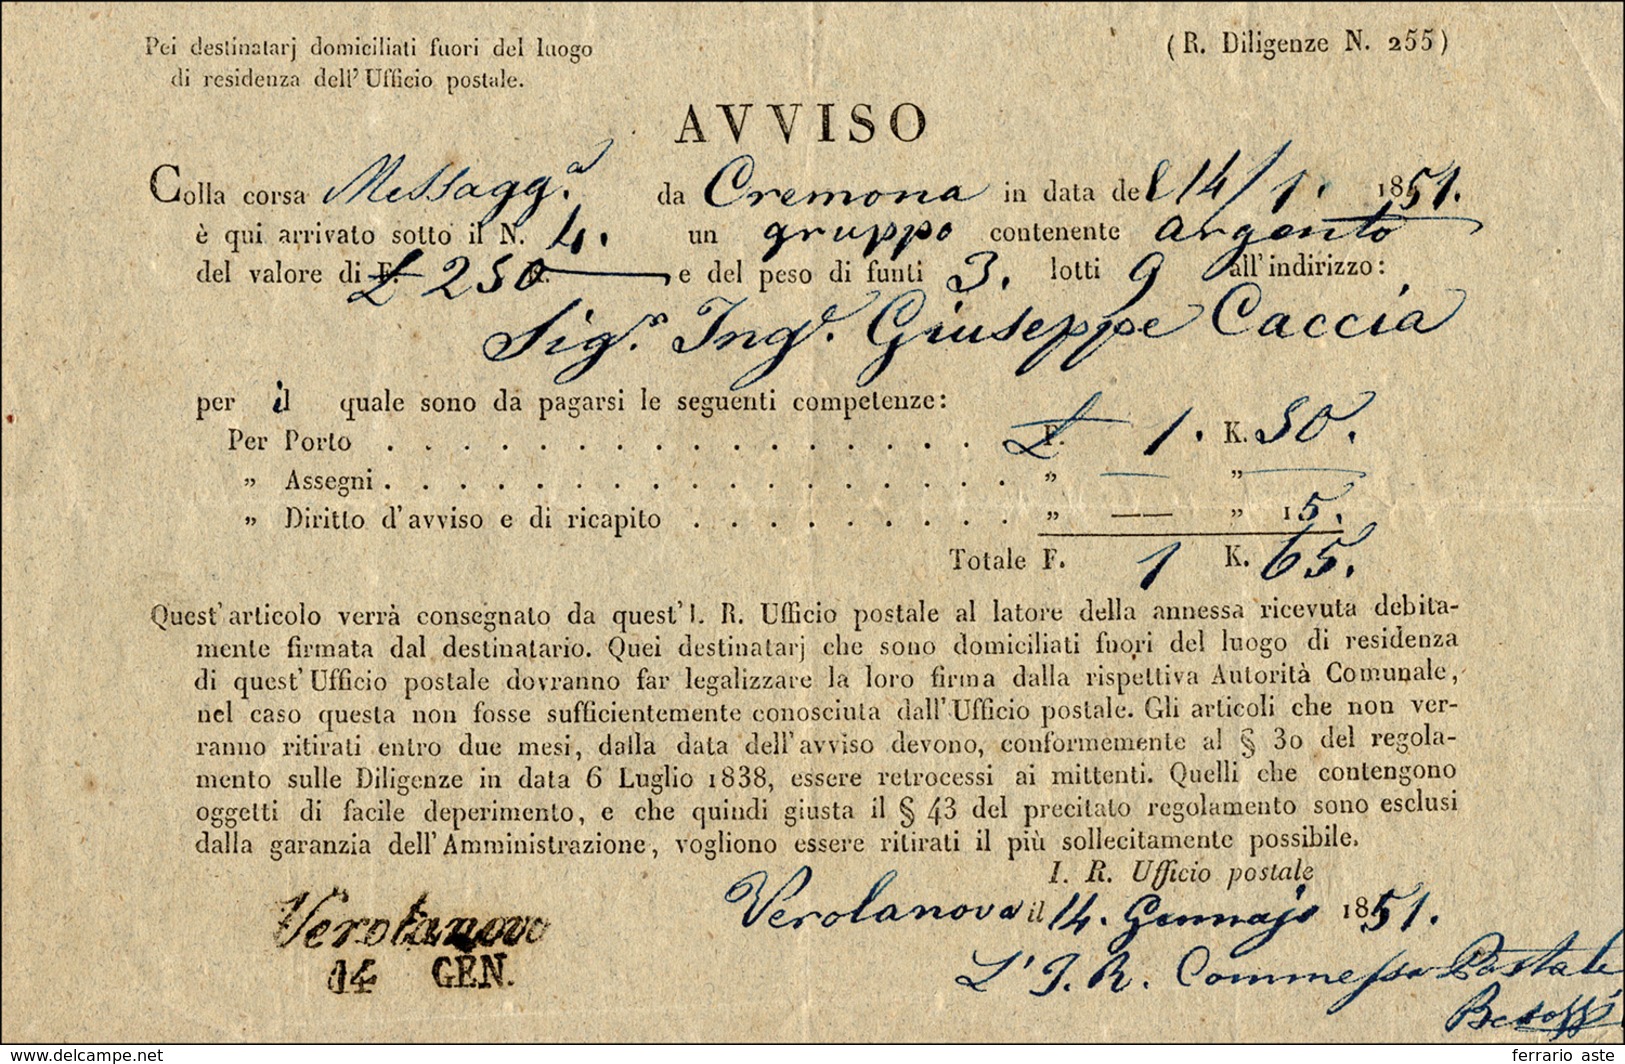 Pei destinatarj domiciliati fuori del luogo
di residenza dell' Ufficio postale.
(R. Diligenze N. 255)
AVVISO
Colla corsa Messagg.a da Cremona in data del 14/1. 1851.
è qui arrivato sotto il N. 4. un gruppo contenente argento
del valore di £ 250 e del peso di funti 3. lotti 9 all'indirizzo:
Sig.r Ing.e Giuseppe Caccia
per il quale sono da pagarsi le seguenti competenze:
Per Porto . . . . . . . . . . . . . . . . £ 1. K. 50.
" Assegni . . . . . . . . . . . . . . . . " — " —
" Diritto d'avviso e di ricapito . . . . . . . . . " —— " 15.
Totale F. 1 K. 65.
Quest' articolo verrà consegnato da quest' I. R. Ufficio postale al latore della annessa ricevuta debita-
mente firmata dal destinatario. Quei destinatarj che sono domiciliati fuori del luogo di residenza
di quest' Ufficio postale dovranno far legalizzare la loro firma dalla rispettiva Autorità Comunale,
nel caso questa non fosse sufficientemente conosciuta dall' Ufficio postale. Gli articoli che non ver-
ranno ritirati entro due mesi, dalla data dell' avviso devono, conformemente al § 30 del regola-
mento sulle Diligenze in data 6 Luglio 1838, essere retrocessi ai mittenti. Quelli che contengono
oggetti di facile deperimento, e che quindi giusta il § 43 del precitato regolamento sono esclusi
dalla garanzia dell' Amministrazione, vogliono essere ritirati il più sollecitamente possibile.
I. R. Ufficio postale
Verolanova il 14. Gennajo 1851.
Verolanovo
14 GEN.
L' I. R. Commesso Postale
ferrario aste